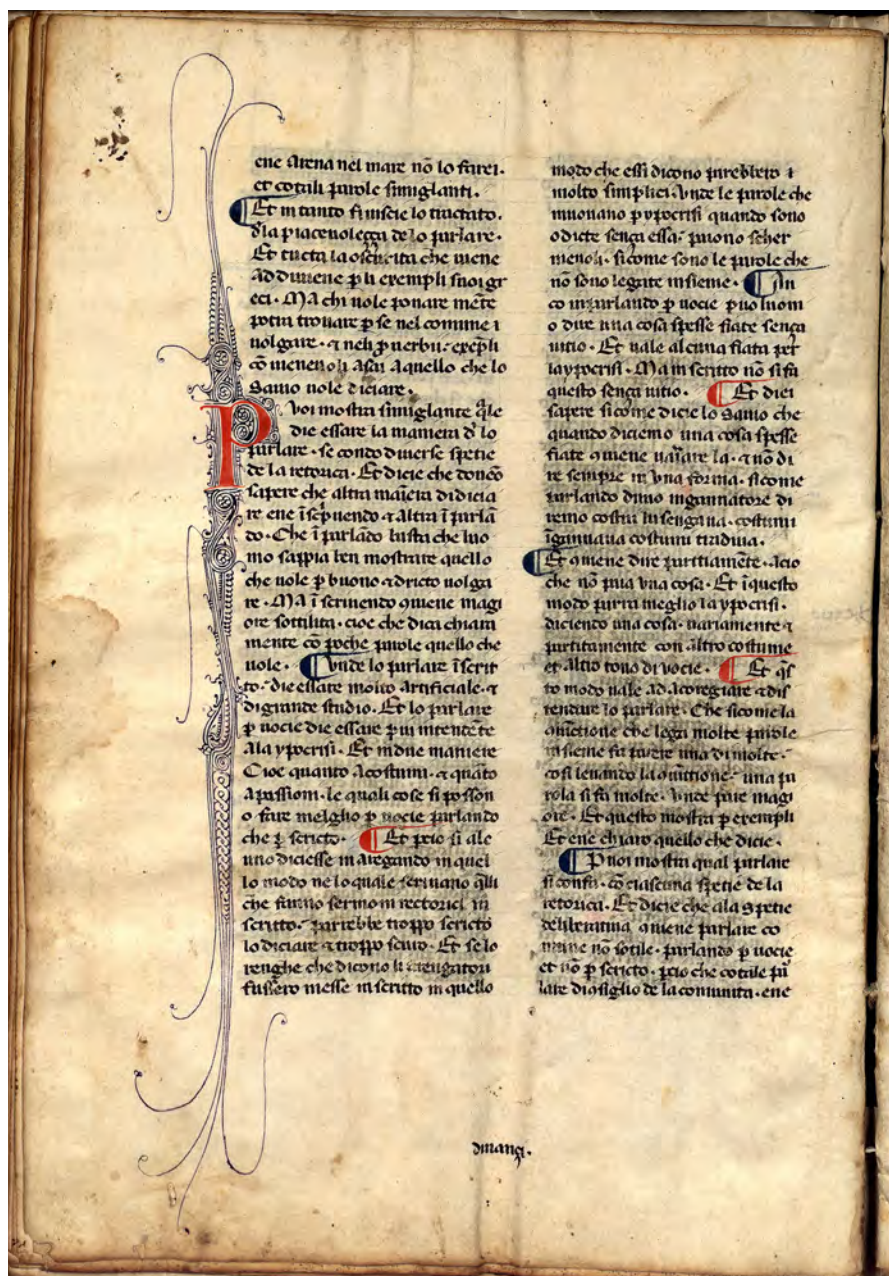 ene Arena nel mare nō lo farei.
et cotali parole simiglanti.
Et in tanto finiscie lo tractato.
d'la piacevoleçça de lo parlare.
Et tucta la oscurita che viene
Adivviene p̄ li exempli suoi gr
eci. MA chi vole ponare mēte
potra trovare p̄ se nel comune i
volgare. ⁊ neli p̄verbii. exēpli
cō menevoli Asai Aquello che lo
Savio vole diciare.
Puoi mostra simiglante q̄le
die essare la maniera d' lo
parlare. se condo diverse spetie
de la retorica. Et dicie che donēo
sapere che altra māiera di dicia
re ene ī sc̄vendo ⁊ Altra ī parlā
do. Che ī parlādo basta che luo
mo sappia ben mostrare quello
che vole p̄ buono ⁊ dricto volga
re. MA ī scrivendo ꝯviene magi
ore sottilita. cioe che dica chiara
mente cō poche parole quello che
vole. Unde lo parlare ī scrit
to. die essare molto artificiale. ⁊
digrande studio. Et lo parlare
p̄ vocie die essare p̄iu intendēte
Ala ypocrisi. Et indue maniere
Cioe quanto Acostumi. ⁊ quāto
Apassioni. le quali cose si posson
o fare melglio p̄ vocie parlando
che p̄ scricto. Et p̄cio si alc
uno diciesse in aregando in quel
lo modo ne lo quale scrivano q̄lli
che fanno sermoni rectorici in
scritto. parrebbe troppo scricto
lo diciare ⁊ troppo scuro. Et se lo
renghe che dicono li arengatori
fussero messe in scritto in quello
modo che essi dicono parebbero i
molto simplici. Unde le parole che
muovano p̄ ypocrisi quando sono
o dicte sença essa. paiono scher
nievoli. sicome sono le parole che
nō sono legate insieme. An
co in parlando p̄ vocie puo luom
o dire una cosa spesse fiate sença
vitio. Et vale alcuna fiata per
la ypocrisi. MA in scritto nō si fa
questo sença vitio. Et diei
sapere sicome dicie lo Savio che
quando diciemo una cosa spesse
fiate ꝯviene variare la. ⁊ nō di
re sempre in una forma. sicome
parlando duno ingannatore di
remo costui lusengava. costui
īgannava costui tradiva.
Et ꝯviene dire partitamēte. Acio
che nō paia una cosa. Et ī questo
modo parra meglio la ypocrisi.
diciendo una cosa. variamente ⁊
partitamente con altro costume
et Altro tono di vocie. Et q̄s
to modo vale ad Acoregiare ⁊ dis
tendare lo parlare. Che sicome la
ꝯiūctione che lega molte parole
insieme fa parere una di molte.
cosi levando la ꝯiūctione. una pa
rola si fa molte. Unde pare magi
ore. Et questo mostra p̄ exempli
Et ene chiaro quello che dicie.
Puoi mostra qual parlare
si confa. cō ciascuna spetie de la
retorica. Et dicie che ala Spetie
deliberativa ꝯviene parlare co
mune nō sotile. parlando p̄ vocie
et nō p̄ scricto. p̄cio che cotale pa
lare diꝯsiglio de la comunita. ene
dinançi.